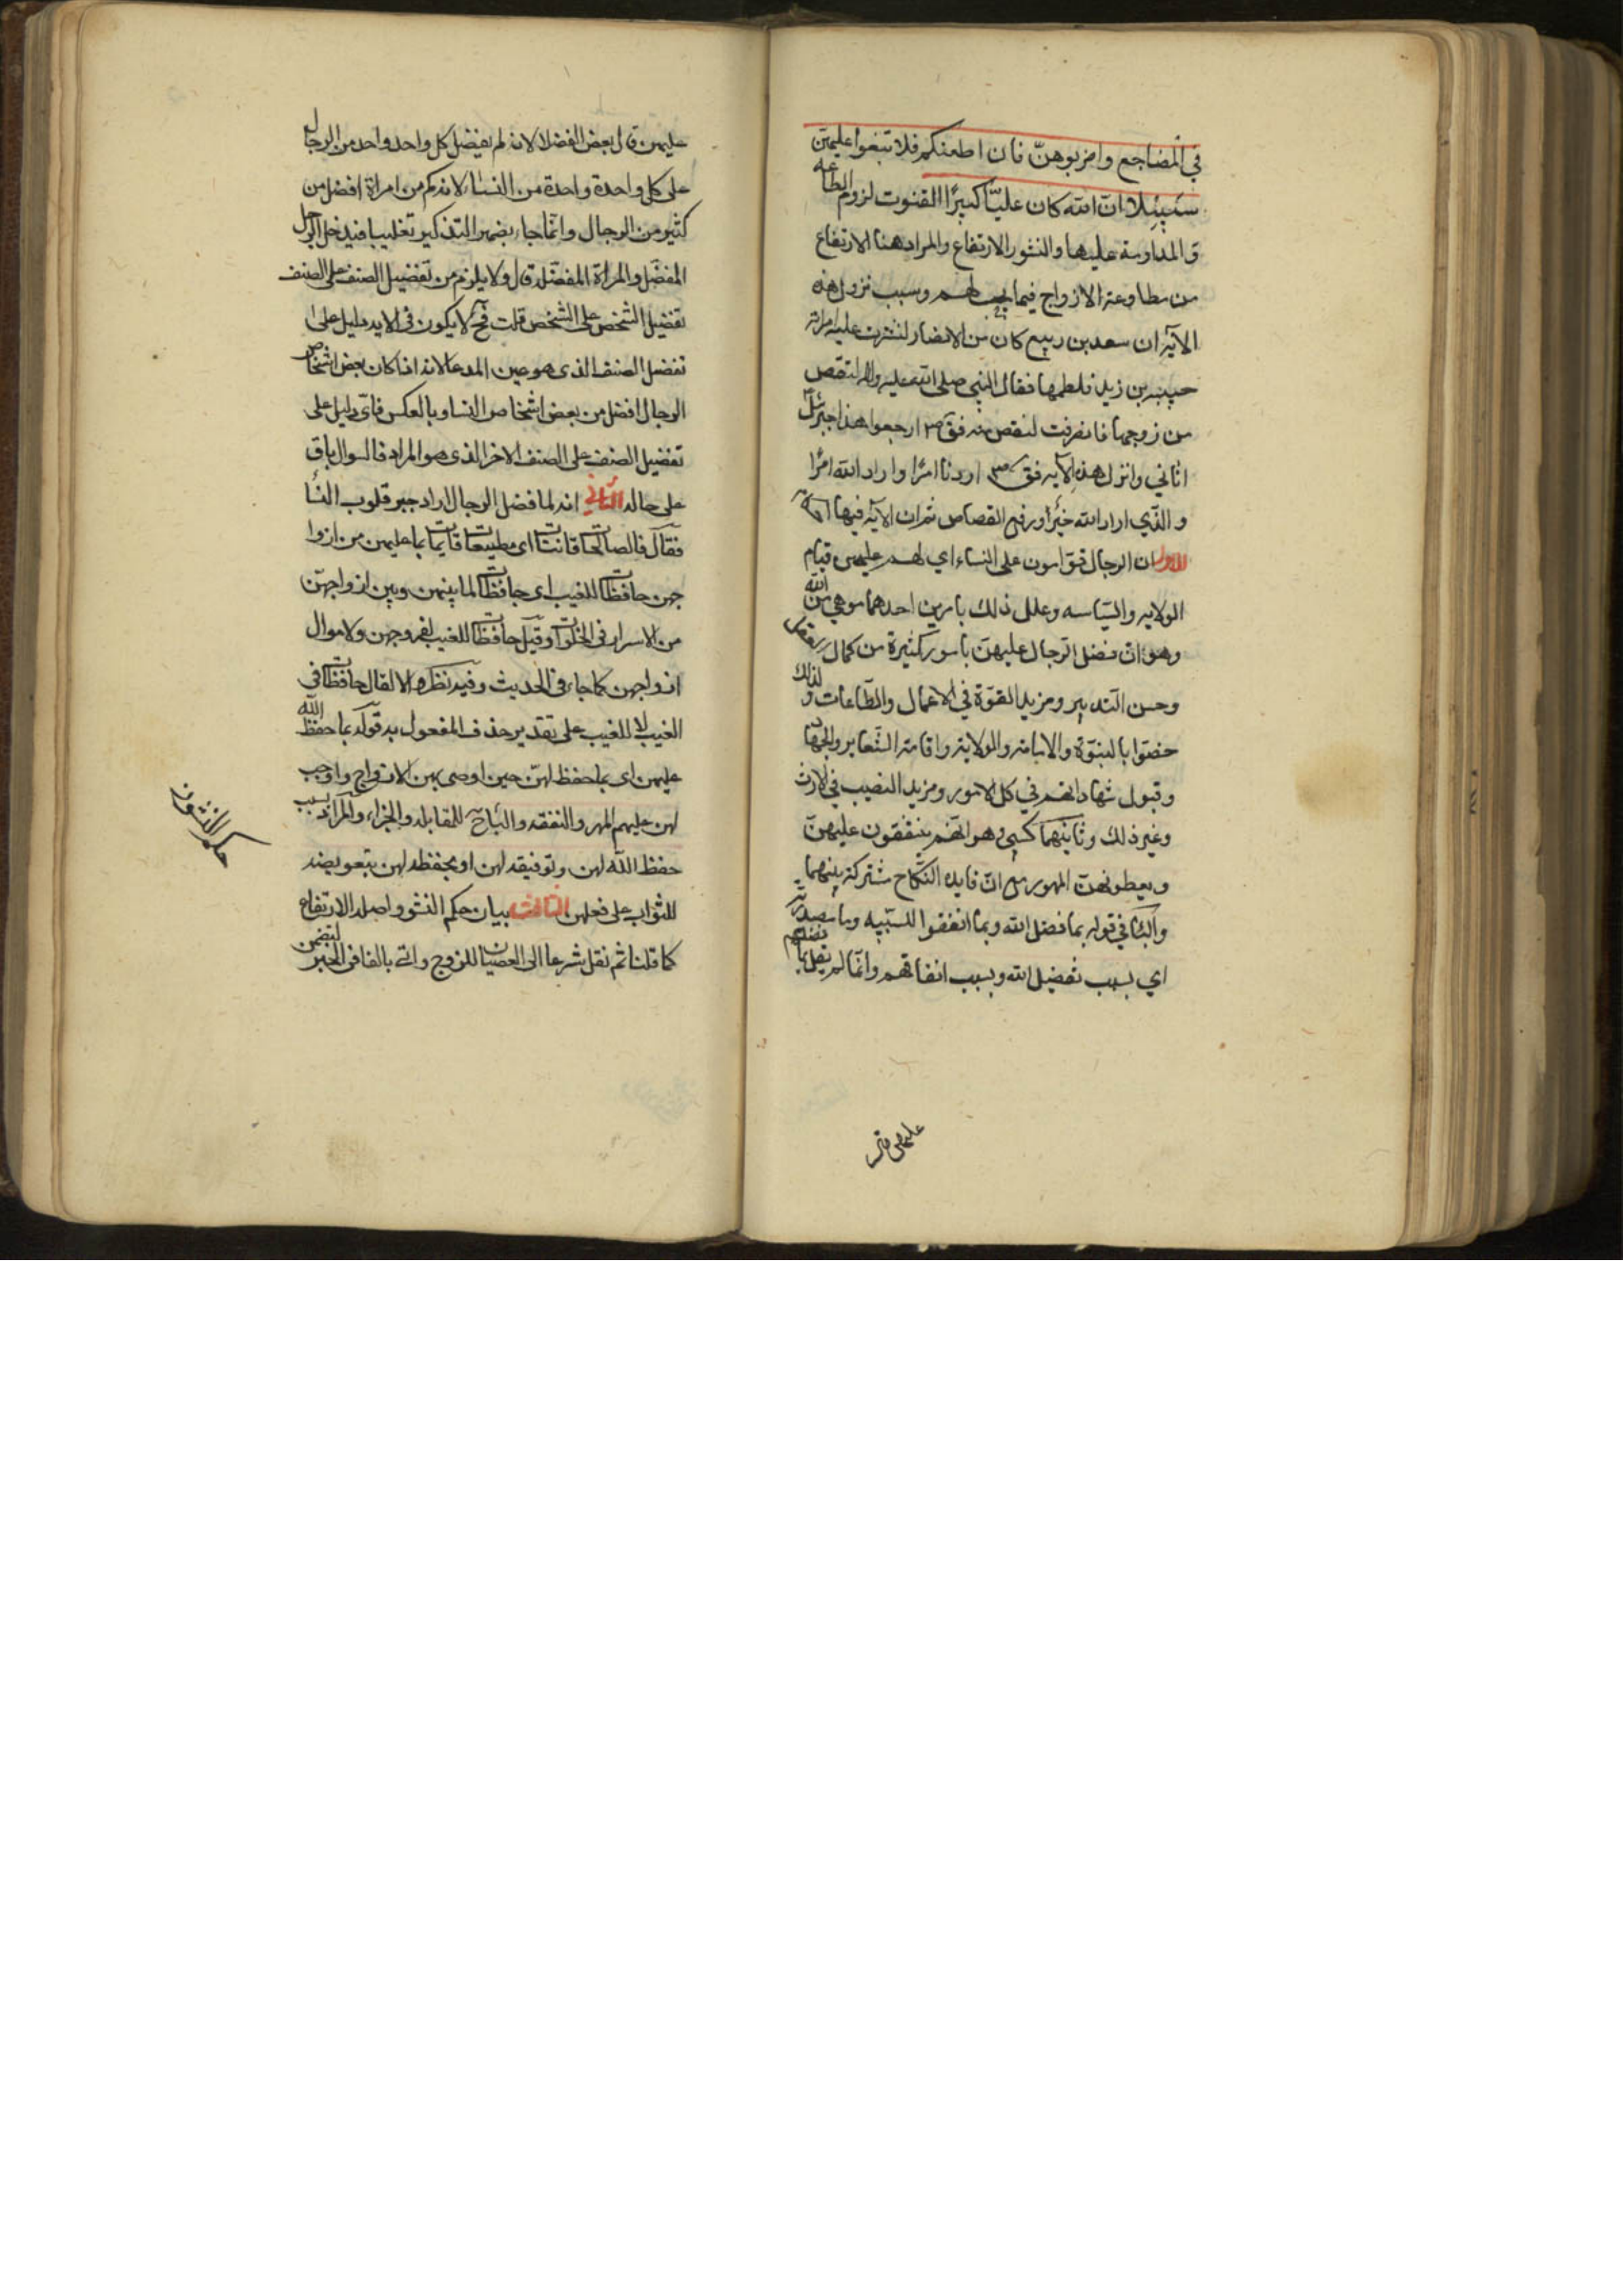 في المضاجع واضربوهنّ فان اطعنكم فلا تبغوا عليهن
سبيلا انّ الله كان عليّا كبيرًا القنوت لزوم الطاعه
و المداومة عليها والنشوز الارتفاع والمراد هنا الارتفاع
من مطاوعة الازواج فيما يجب لهم وسبب نزول هذه
الآية ان سعد بن ربيع كان من الانصار نشزت عليه امراته
حبيبه بن زيد فلطمها فقال النبي صلى الله عليه واله لتقتص
من زوجها فانصرفت لتقتص منه فق ص ارجعوا هذا جبرئيل
اتاني وانزل هذه الآيه فق ص اردنا امرًا واراد الله امرًا
و الذّي اراد الله خيرًا ورفع القصاص ثم ان الآية فيها احكام
الاول ان الرجال قوّامون على النساء اي لهم عليهن قيام
الولايه والسّياسه وعلل ذلك بامرين احدهما موهبي من الله
وهو ان فضل الرجال عليهنّ بامور كثيرة من كمال العقل
وحسن التدبير ومزيد القوّة في الاعمال والطّاعات ولذلك
خصّوا بالنبوّة والامامة والولاية واقامة الشّعاير والجهاد
وقبول شهادتهم في كل الامور ومزيد النصيب في الارث
وغير ذلك وثانيهما كسبي وهو انهّم ينفقون عليهنّ
ويعطونهنّ المهور مع انّ فايده النّكاح مشتركة بينهما
والباء في قوله بما فضل الله وبما انفقوا للسّببيه وما مصدريّة
اي بسبب تفضيل الله وبسبب انفاقهم وانمّا لم يقل بما فضلهم
عليهن
عليهن قال بعض الفضلا لانه لم يفضل كل واحد واحد من الرجال
على كل واحدة واحدة من النساء لانه كم من امراة افضل من
كثير من الرجال وانمّا جاء بضمير التذكير تغليبا فيدخل الرجل
المفضّل والمراة المفضّله قال ولا يلزم من تفضيل الصنف على الصنف
تفضيل الشخص على الشخص قلت فح لا يكون في الايه دليل على
تفضيل الصنف الذى هو عين المدعا لانه اذا كان بعض اشخاص
الرجال افضل من بعض اشخاص النسا وبالعكس فاى دليل على
تفضيل الصنف على الصنف الاخر الذى هو المراد فالسوال باق
على حاله الثانى انه لما فضل الرجال اراد جبر قلوب النسا
فقال فالصالحات قانتات اى مطيعات قايمات بما عليهن من ازوا
جهن حافظات للغيب اى حافظات لما بينهن وبين ازواجهنّ
من الاسرار فى الخلوات وقيل حافظات للغيب لفروجهن ولاموال
ازواجهن كما جاء فى الحديث وفيه نظر والا لقال حافظات فى
الغيب لا للغيب على تقدير حذف المفعول به قوله بما حفظ الله
عليهن اى بما حفظ لهنّ حين اوصى بهن الازواج واوجب
لهن عليهم المهر والنفقه والباء ح للمقابله والجزاء والمراد بسبب
حفظ الله لهن وتوفيقه لهن او بحفظه لهن بتعويضه
للثواب على فعلهن الثالث بيان حكم النشوز واصله الارتفاع
كما قلنا ثم نقل شرعا الى العصيان للزوج واتى بالفا فى الخبر لتضمن
حكم النشوز